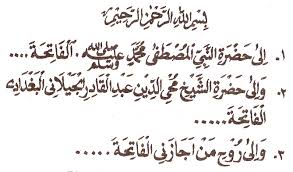 بِسْمِ اللهِ الرَّحْمٰنِ الرَّحِيْمِ
١. اِلَى حَضْرَةِ النَّبِيِّ الْمُصْطَفَى مُحَمَّدٍ ﷺ. اَلْفَاتِحَةَ ....
٢. وَاِلَى حَضْرَةِ الشَّيْخِ مُحْيِ الدِّيْنِ عَبْدِ الْقَادِرِ الْجَيْلَانِى الْبَغْدَادِى
الْفَاتِحَةَ .....
٣. وَاِلَى رُوْحِ مَنْ اَجَازَنِى الْفَاتِحَةَ .....